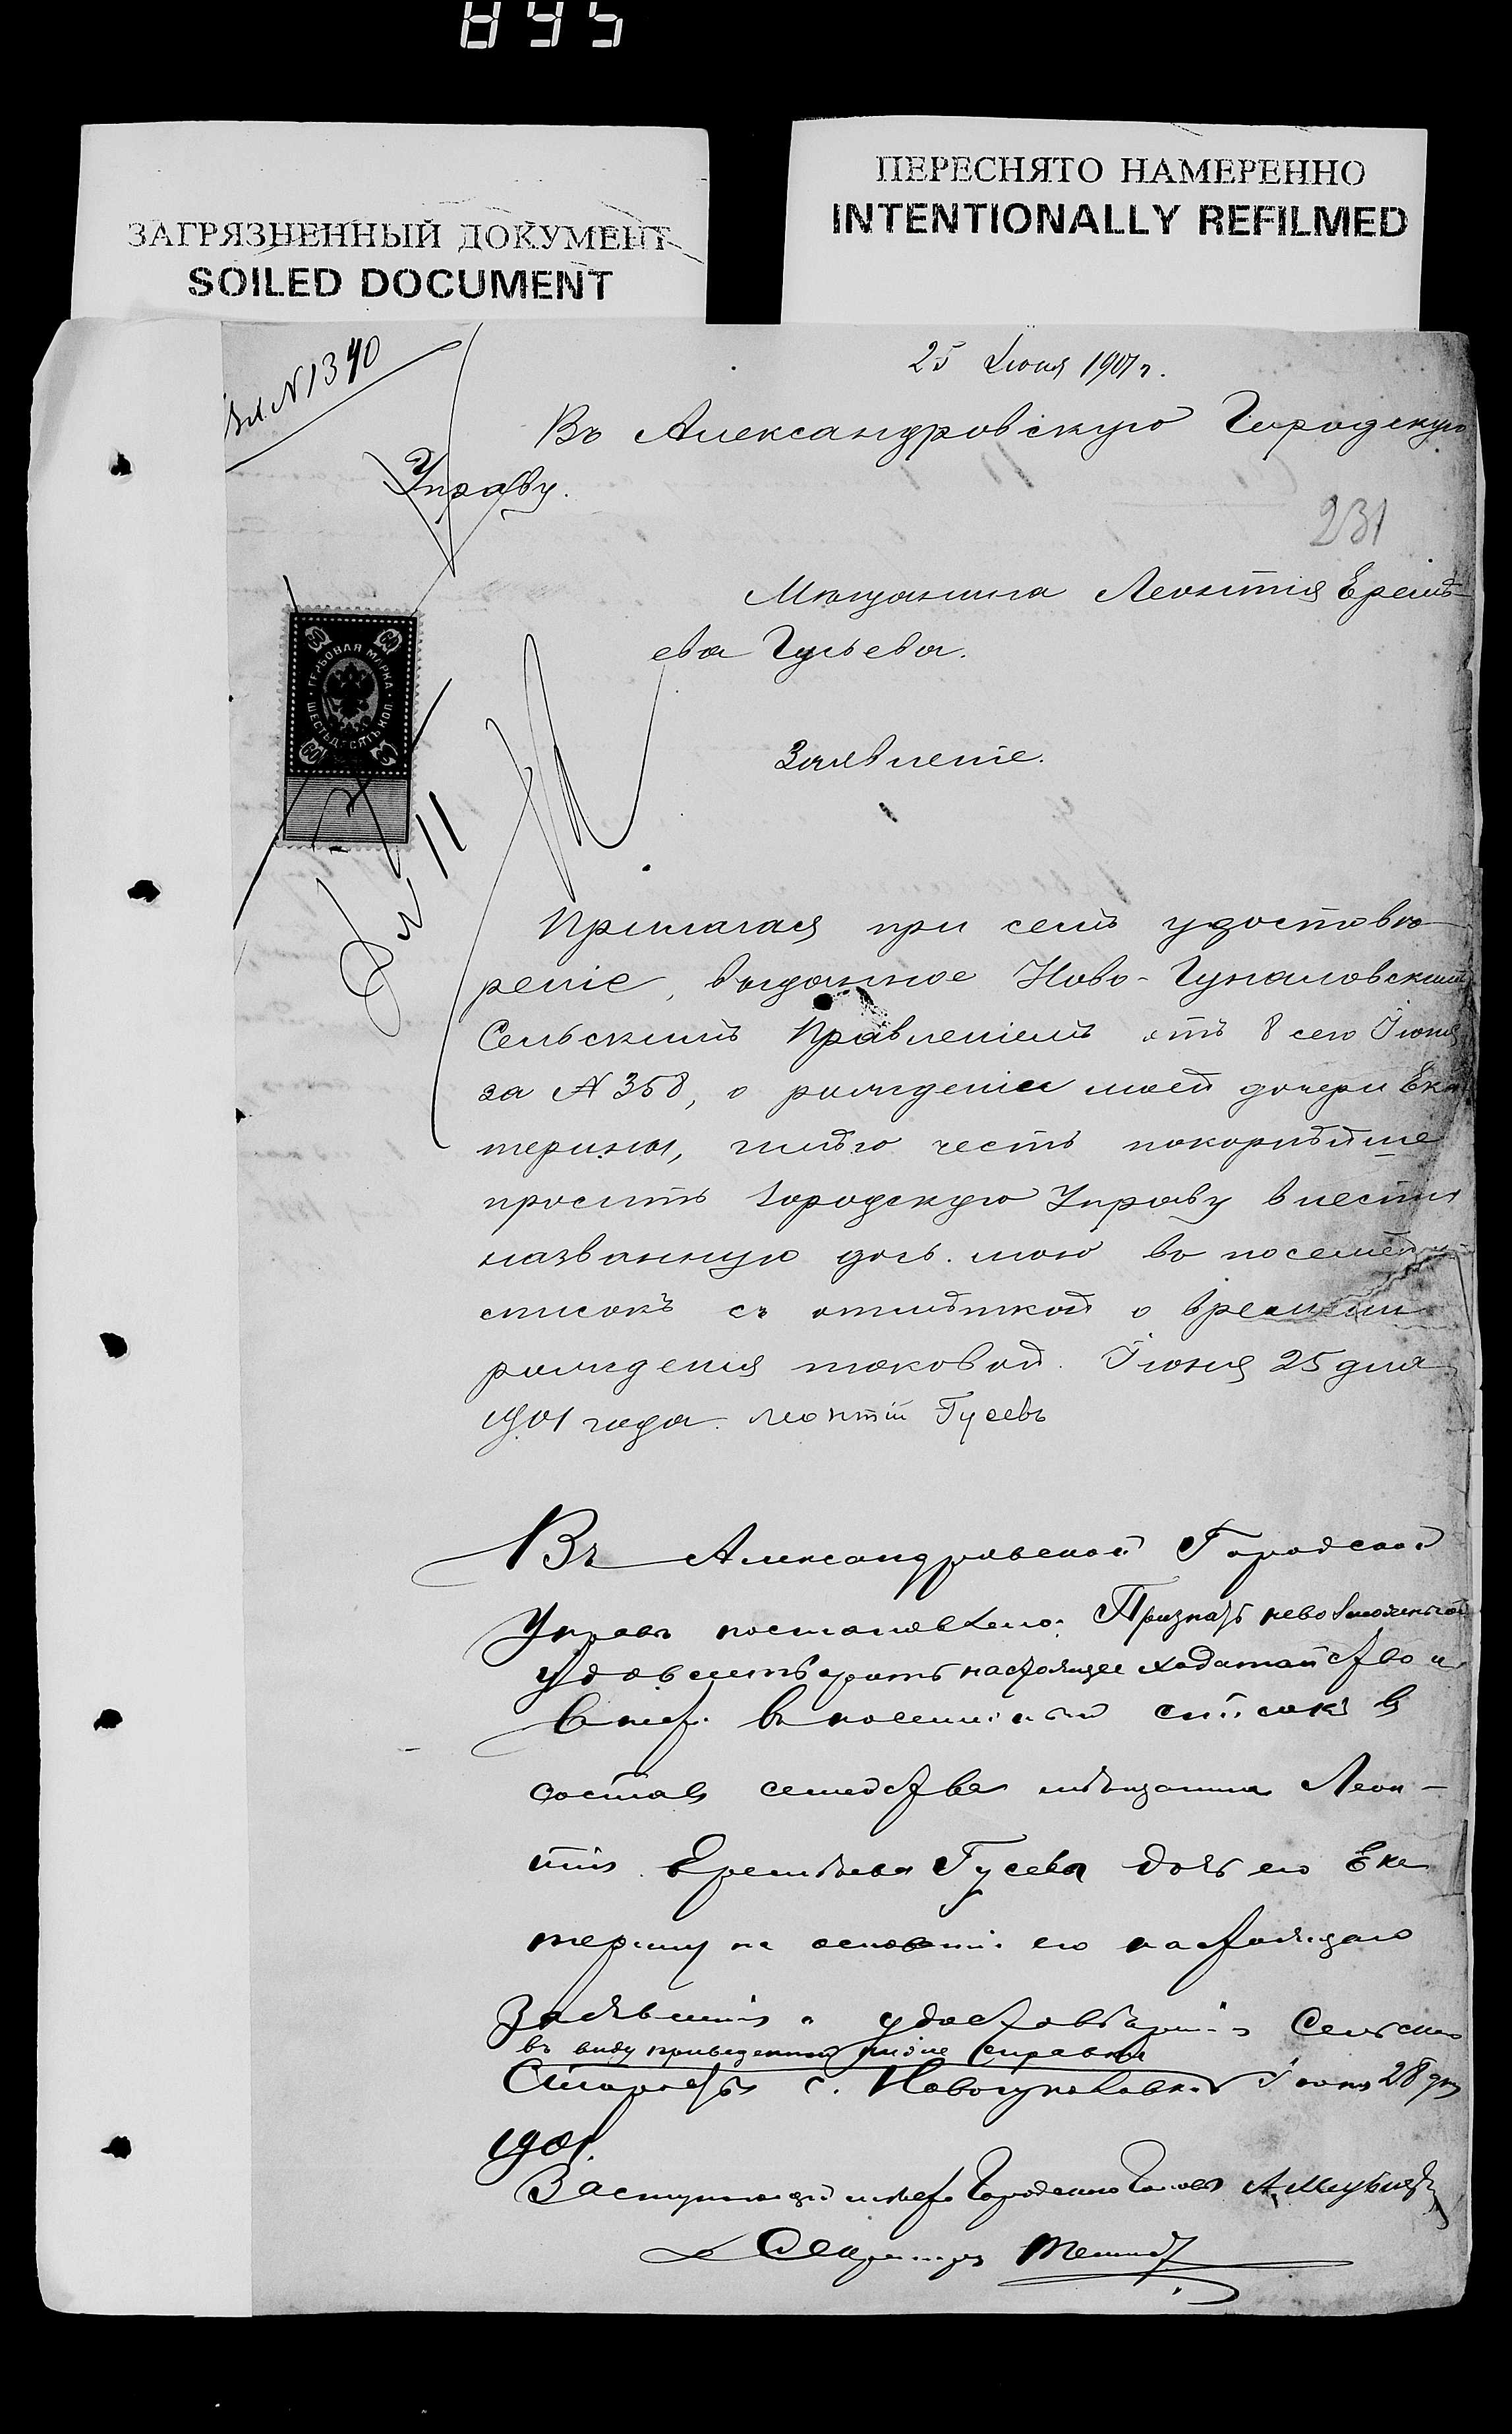 895
ЗАГРЯЗНЕННЫЙ ДОКУМЕНТ
SOILED DOCUMENT
ПЕРЕСНЯТО НАМЕРЕННО
INTENTIONALLY REFILMED
Вх. № 1340
25 Іюня 1901 г.
Въ Александровскую Городскую
Управу.
231
Мѣщанина Леонтія Еремѣ-
ева Гусьева.
ГЕРБОВАЯ МАРКА
ШЕСТЬДЕСЯТЪ КОП.
60 60 60
Заявленіе.
Прилагая при семъ удостовѣ
реніе, выданное Ново-Гупаловскимъ
Сельскимъ Правленіемъ отъ 8 сего Іюня
за № 358, о рожденіи моей дочери Ека
терины, имѣю честь покорнѣйше
просить Городскую Управу внести
названную дочь мою въ посемейный
списокъ съ отмѣткой о времени
рожденія таковой. Іюня 25 дня
1901 года. Леонтій Гусевъ
Въ Александровской Городской
Управѣ постановлено: Признать невозможнымъ
удовлетворить настоящее ходатайство и
въ посемейный списокъ въ
составъ семейства мѣщанина Леон-
тія Еремѣева Гусева дочь его Ека
терину на основаніи его настоящаго
Заявленія и удостовѣренія Сельскаго
въ виду приведенной ниже справки
Старосты с. Новогупаловки Іюня 28 дня
1901.
Заступающій мѣсто Городского Головы
Секретарь